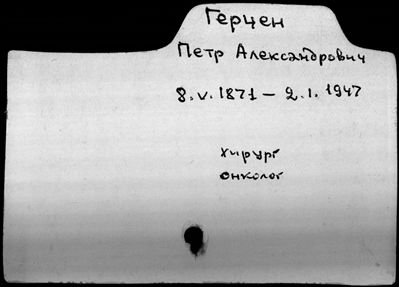 Герцен
Петр Александрович
8.V.1871 – 2.1.1947
хирург
онколог